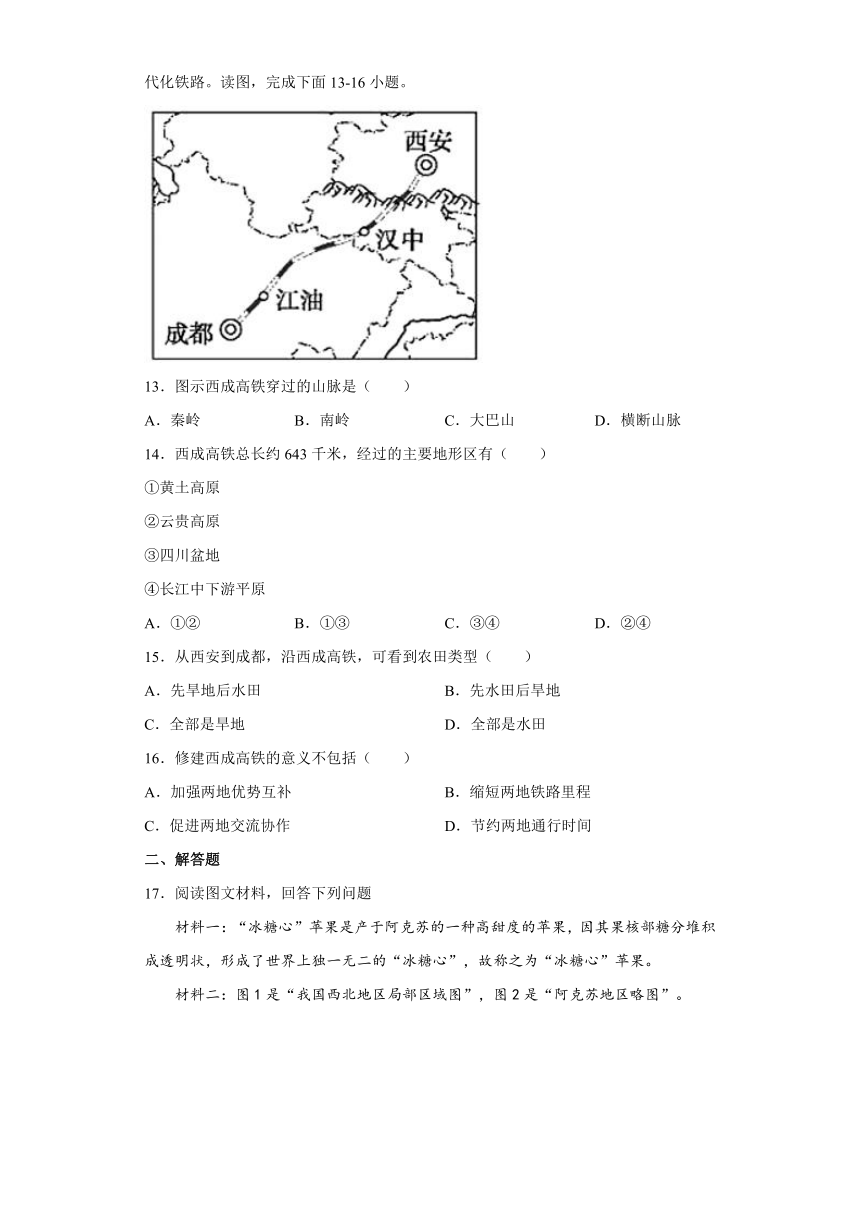 代化铁路。读图，完成下面13-16小题。
西安
汉中
江油
成都
13．图示西成高铁穿过的山脉是（　　）
A．秦岭　B．南岭　C．大巴山　D．横断山脉
14．西成高铁总长约643千米，经过的主要地形区有（　　）
①黄土高原
②云贵高原
③四川盆地
④长江中下游平原
A．①②　B．①③　C．③④　D．②④
15．从西安到成都，沿西成高铁，可看到农田类型（　　）
A．先旱地后水田　B．先水田后旱地
C．全部是旱地　D．全部是水田
16．修建西成高铁的意义不包括（　　）
A．加强两地优势互补　B．缩短两地铁路里程
C．促进两地交流协作　D．节约两地通行时间
二、解答题
17．阅读图文材料，回答下列问题
材料一：“冰糖心”苹果是产于阿克苏的一种高甜度的苹果，因其果核部糖分堆积
成透明状，形成了世界上独一无二的“冰糖心”，故称之为“冰糖心”苹果。
材料二：图1是“我国西北地区局部区域图”，图2是“阿克苏地区略图”。